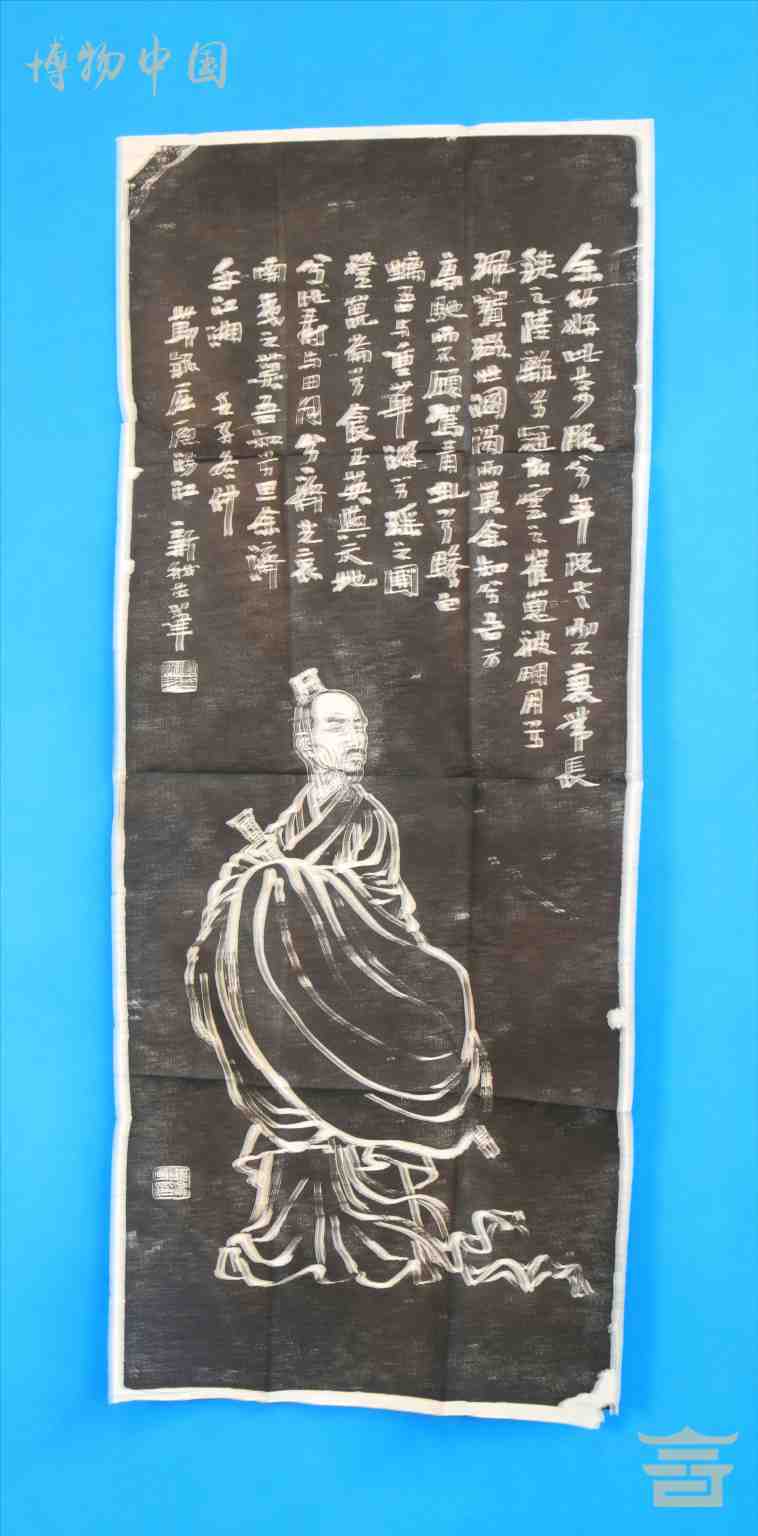 博物中国
余幼好此奇服兮年既老而不衰帶長
鋏之陸離兮冠切雲之崔嵬被明月兮
珮寶璐世溷濁而莫余知兮吾方
高馳而不顧駕青虬兮驂白
螭吾与重華遊兮瑤之圃
登崑崙兮食玉英與天地
兮比壽与日月兮齊光哀
南夷之莫吾知兮旦余濟
乎江湘 子冬
節錄屈原涉江 新 筆